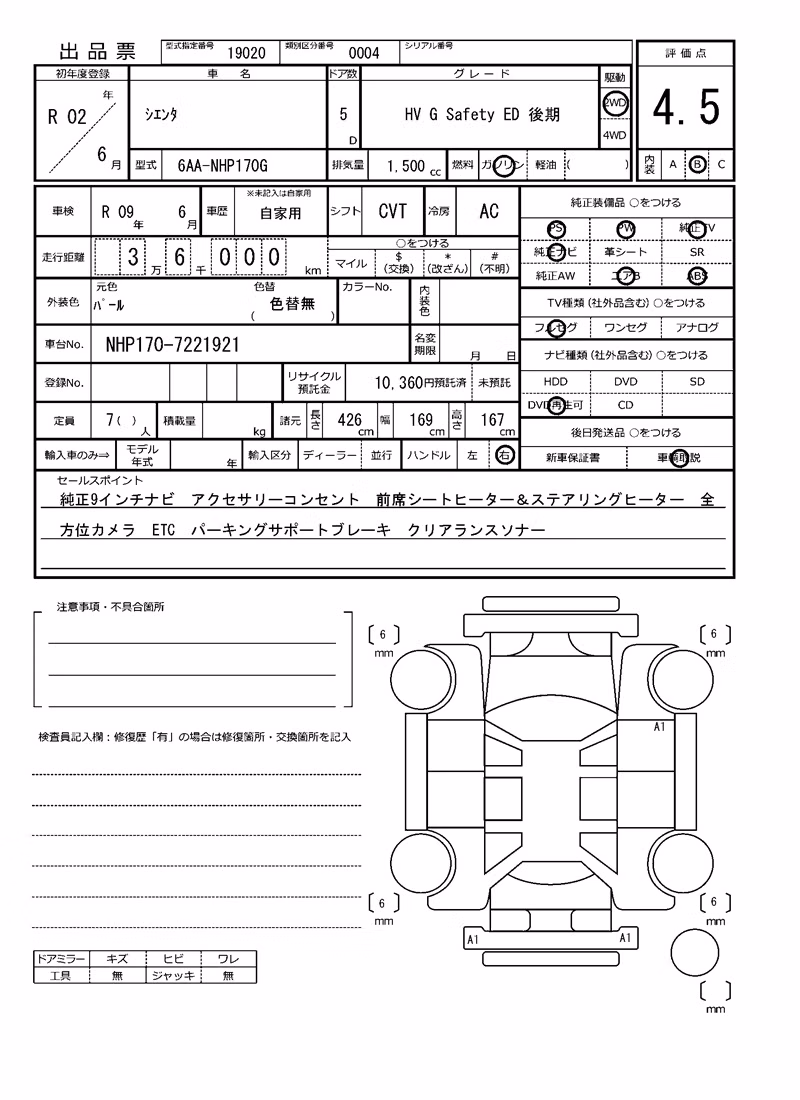 出品票 型式指定番号 19020 類別区分番号 0004 シリアル番号
評価点
4.5
内装 A B C
初年度登録 車名 ドア数 グレード 駆動
R 02 年 6 月
シエンタ
5 D
HV G Safety ED 後期
2WD
4WD
型式 6AA-NHP170G 排気量 1,500 cc 燃料 ガソリン 軽油 ( )
車検 R 09 年 6 月 車歴 ※未記入は自家用 自家用 シフト CVT 冷房 AC
走行距離 3 万 6 千 0 0 0 km
○をつける
マイル $(交換) *(改ざん) #(不明)
外装色 元色 パール 色替 色替無 ( ) カラーNo. 内装色
車台No. NHP170-7221921 名変期限 月 日
登録No. リサイクル預託金 10,360円預託済 未預託
定員 7( ) 人 積載量 kg 諸元 長さ 426 cm 幅 169 cm 高さ 167 cm
輸入車のみ⇒ モデル年式 年 輸入区分 ディーラー 並行 ハンドル 左 右
純正装備品 ○をつける
PS PW 純正TV
純正ナビ 革シート SR
純正AW エアB ABS
TV種類(社外品含む)○をつける
フルセグ ワンセグ アナログ
ナビ種類(社外品含む)○をつける
HDD DVD SD
DVD再生可 CD
後日発送品 ○をつける
新車保証書 車輌取説
セールスポイント
純正9インチナビ アクセサリーコンセント 前席シートヒーター＆ステアリングヒーター 全
方位カメラ ETC パーキングサポートブレーキ クリアランスソナー
注意事項・不具合箇所
検査員記入欄：修復歴「有」の場合は修復箇所・交換箇所を記入
ドアミラー キズ ヒビ ワレ
工具 無 ジャッキ 無
6 mm
6 mm
A1
6 mm
6 mm
A1 A1
mm